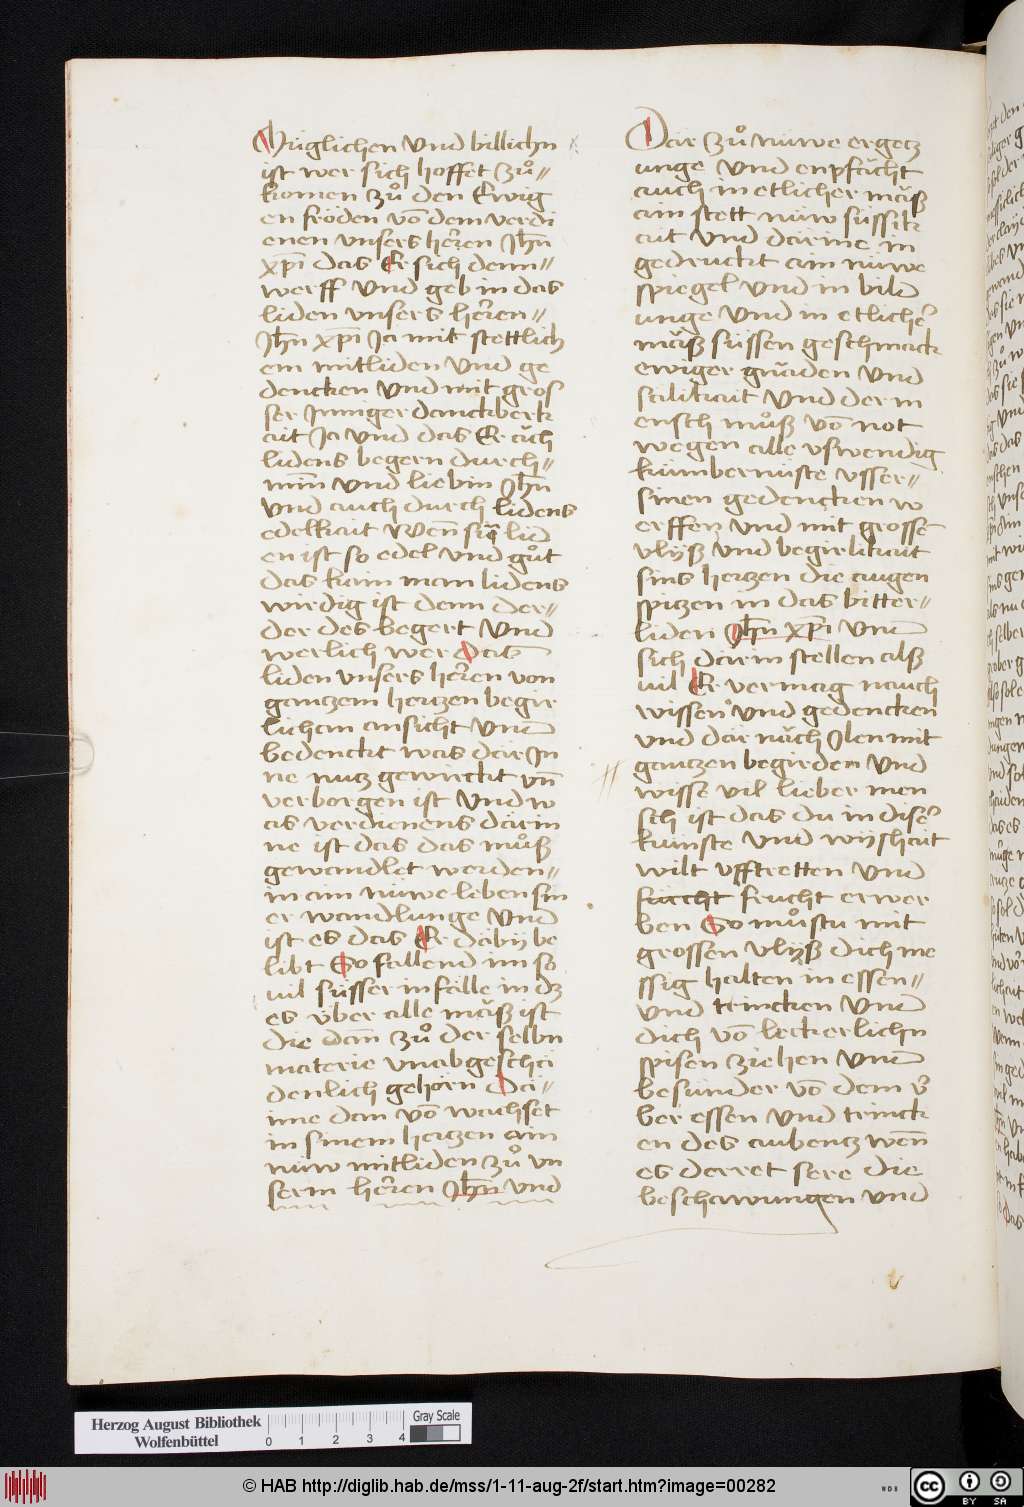 Muglichen vnd billichn
ist wer sich hoffet zuͦ//
komen zuͦ den Ewig
en fröden vō dem verdi
enen vnsers herren Jhn̄
xp̄i das Er sich denn//
werff vnd geb in das
liden vnsers herren//
Jhn̄ xp̄i Ja mit stettlich
em mitliden vnd ge
dencken vnd mit gros
ser Inniger danckberk
ait Ja vnd das Er äch
lidens begern durch//
min̄ vnd liebin Jhn̄
vnd auch durch lidens
edelkait Wen̄ sin lid
en ist so edel vnd guͦt
das kaim man lidens
wirdig ist denn der//
der des begert vnd
werlich wer das
liden vnsers herren von
gantzem hertzen begir
lichan ansicht vnd
bedenckt was dar In
ne nutz gewirckt vn̄
verborgen ist vnd w
as verdienens darin
ne ist das das muͦß
gewandlet werden//
in ain nüwe leben sin
er wandlunge vnd
ist es das Er däbÿ be
libt So fallend im so
uil süsser infälle in dz
es über alle mäß ist
die dan̄ zuͦ der selbn
materie vnabgeschai
denlich gehörn Da//
inne dan vō wachset
in sinem hertzen ain
nüw mitliden zuͦ vn
serm herren Jhn̄ vnd
Dar zuͦ nüwe ergetz
unge vnd enpfächt
auch in etlicher mäß
ain stett nüw süssik
ait vnd darine in
gedruckt ain nüwe
spiegel vnd in bild
unge vnd in etlicher
mäß süssen geschmack
ewiger gnäden vnd
sälikait vnd der m
ensch muͦß vō not
wegen alle vßwendig
kümbernüste vsser//
sinen gedencken w
erffen vnd mit grosse
vlÿß vnd begirlikait
sins hertzen die augen
spitzen in das bitter//
liden Jhn̄ xp̄i vnd
sich dar in stellen alß
uil Er vermag nauch
wissen vnd gedencken
vnd dar näch Ilen mit
gantzen begirden vnd
wisse uil lieber men
sch ist das du in diser
kunste vnd wÿßhait
wilt vfftretten vnd
fuccht frucht erwer
ben So muͦstu mit
grossen vlÿß dich me
ssig halten in essen//
vnd trincken vnd
dich vō leckerlichn
spisen ziehen vnd
besunder vō dem v̈
ber essen vnd trinck
en des aubentz wen̄
es derret sere die
beschawungen vnd
Herzog August Bibliothek
Wolfenbüttel
0 1 2 3 4
Gray Scale
© HAB http://diglib.hab.de/mss/1-11-aug-2f/start.htm?image=00282
WDB
cc BY SA